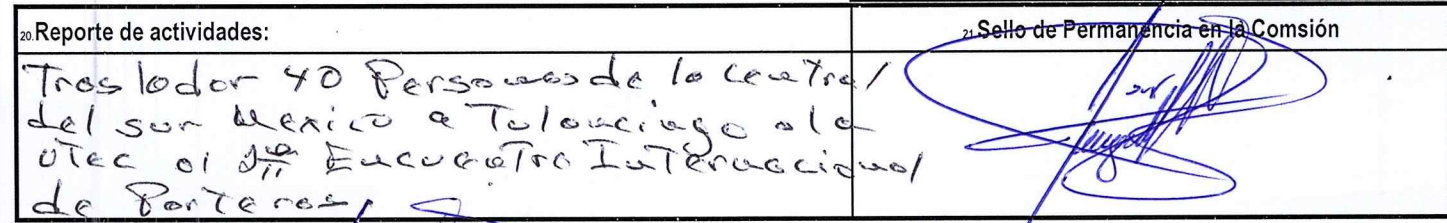 20. Reporte de actividades:
21. Sello de Permanencia en la Comsión
Trasladar 40 Personas de la Central
del sur Mexico a Tulancingo a la
UTec al Encuentro Internacional
de Porteros,